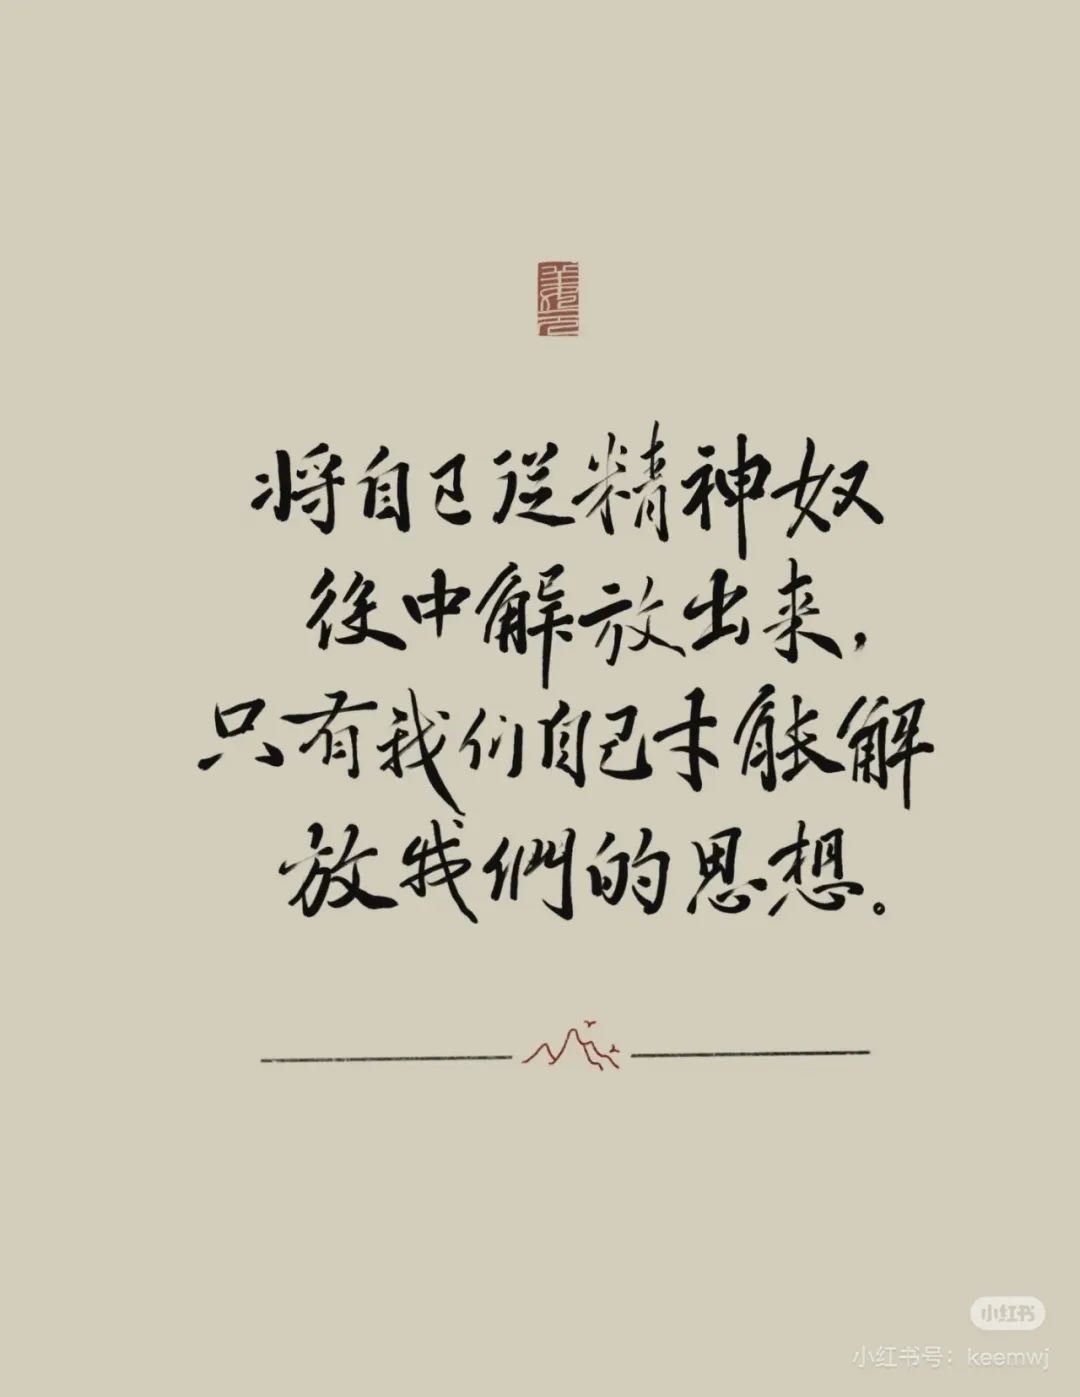 将自己從精神奴
役中解放出来，
只有我们自己才能解
放我們的思想。
小红书
小红书号：keemwj